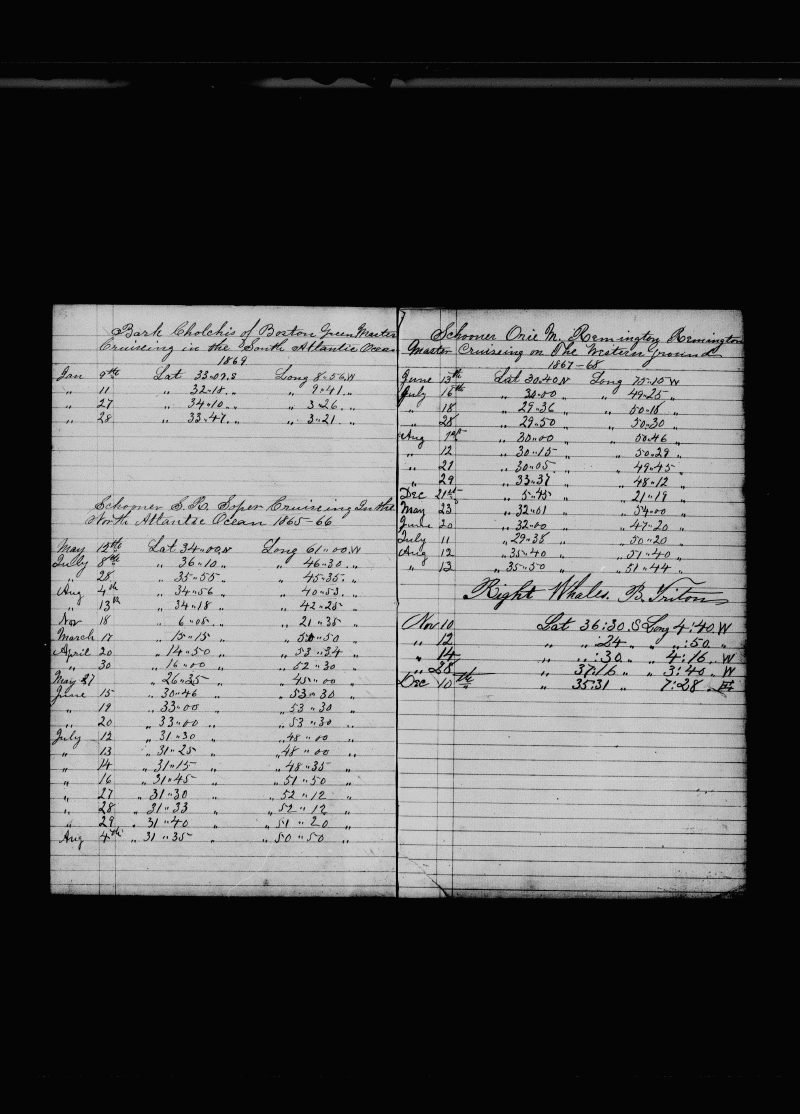 Bark Cholchis of Boston Green Master
Cruiseing in the South Atlantic Ocean
1869
Jan 9th Lat 33„07„S Long 8„56„W
„ 11 „ 32„18„ „ 9„41„
„ 27 „ 34„10„ „ 3„26„ „
„ 28 „ 33„47„ „ 3„21„ „
Schooner S. R. Soper Cruiseing In the
North Atlantic Ocean 1865-66
May 12th Lat 34„00„N Long 61„00„W
July 8th „ 36„10„ „ 46„30„ „
„ 28 „ 35„55 „ „ 45„35„ „
Aug 4th „ 34„56 „ 40„53„ „
„ 13th „ 34„18 „ „ 42„25 „
Nov 18 „ 6„05„ „ 21„35 „
March 17 „ 15„15 „ „ 50„50 „
April 20 „ 14„50 „ „ 53„34 „
„ 30 „ 16„00 „ „ 52„30 „
May 27 „ 26„35 „ „ 45„00 „
June 15 „ 30„46 „ 53„30
„ 19 „ 33„00 „ „ 53„30 „
„ 20 „ 33„00 „ „ 53„30 „
July 12 „ 31„30 „ „ 48„00 „
„ 13 „ 31„25 „ „ 48„00 „
„ 14 „ 31„15 „ „ 48„35 „
„ 16 „ 31„45 „ 51„50 „
„ 27 „ 31„30 „ „ 52„12 „
„ 28 „ 31„33 „ „ 52„12 „
„ 29 „ 31„40 „ „ 51„20 „
Aug 4th „ 31„35 „ „ 50„50 „
Schooner Orie M. Remington Remington
Master Cruiseing on The Western Ground
1867-68
June 13th Lat 30„40„N Long 75„10„W
July 16th „ 30„00 „ „ 49„25 „
„ 18 „ 29„36 „ 50„18 „
„ 28 „ 29„50 „ 50„30 „
Aug 1st „ 30„00 „ 50„46 „
„ 12 „ 30„15 „ „ 50„29 „
„ 21 „ 30„05 „ „ 49„45 „
„ 29 „ 33„37 „ „ 48„12 „
Dec 21st „ 5„45 „ „ 21„19 „
May 23 „ 32„01 „ „ 54„00 „
June 20 „ 32„00 „ „ 47„20 „
July 11 „ 29„38 „ „ 50„20 „
Aug 12 „ 35„40 „ „ 51„40 „
„ 13 „ 35„50 „ „ 51„44 „
Right Whales. B. Triton
Nov 10 Lat 36:30 S Long 4:40 W
„ 12 „ „:24 „ „ „:50 „
„ 14 „ „:30 „ „ 4:16 „ W
„ 28 „ 37:16 „ „ 3:40 „ W
Dec 10th „ 35:31 „ 7:28 „ Et